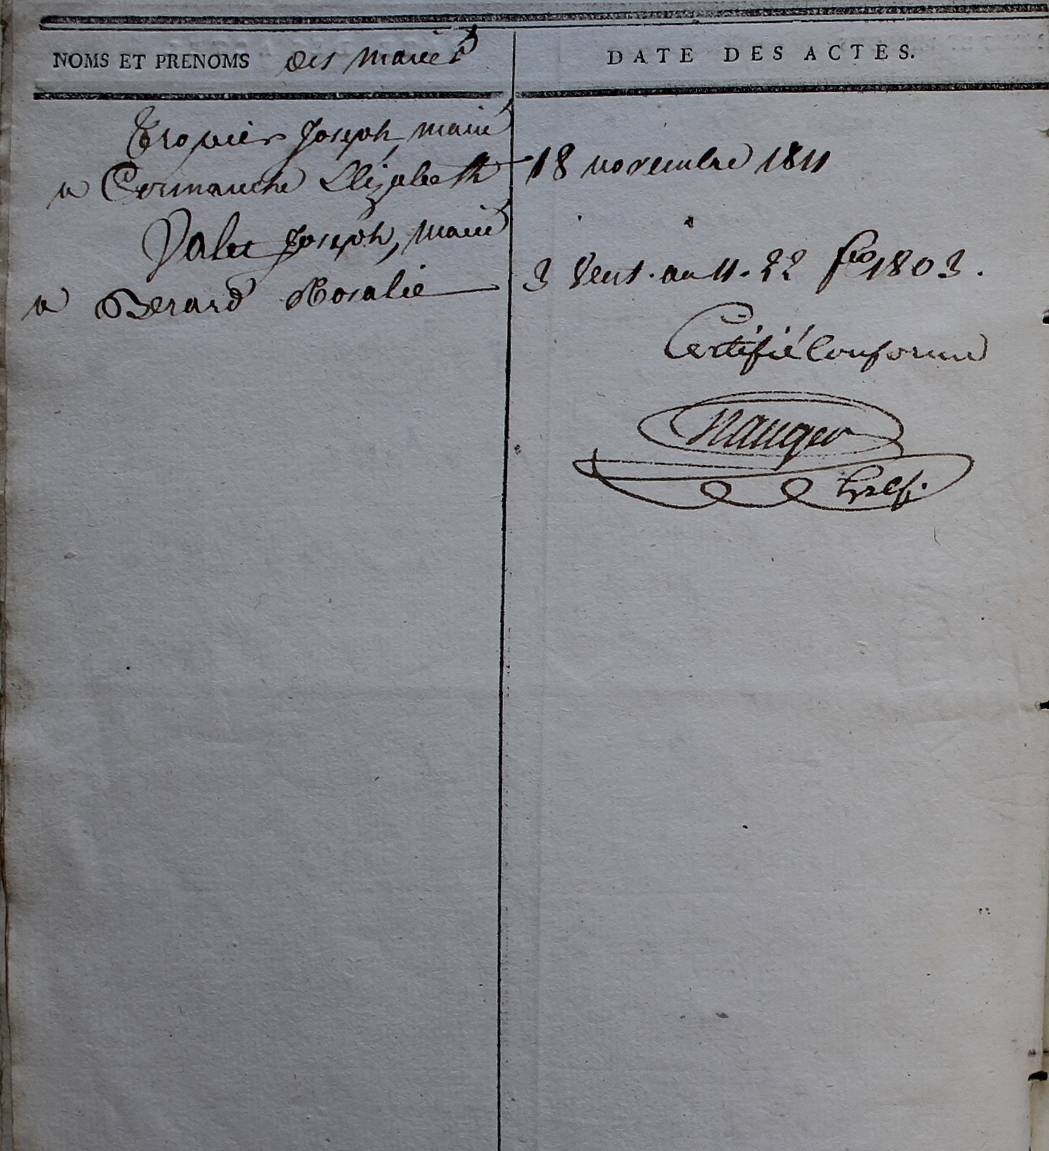 NOMS ET PRENOMS des mariés DATE DES ACTES.
Joseph, marié
a Elizabeth 18 novembre 1811
Valet Joseph, marié
a Berard Rosalie 3 Vent. an 11. 22 fer 1803.
Certifié Conforme